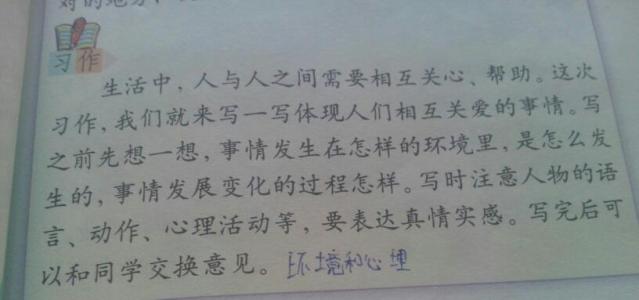 习作
生活中，人与人之间需要相互关心、帮助。这次
习作，我们就来写一写体现人们相互关爱的事情。写
之前先想一想，事情发生在怎样的环境里，是怎么发
生的，事情发展变化的过程怎样。写时注意人物的语
言、动作、心理活动等，要表达真情实感。写完后可
以和同学交换意见。环境和心理